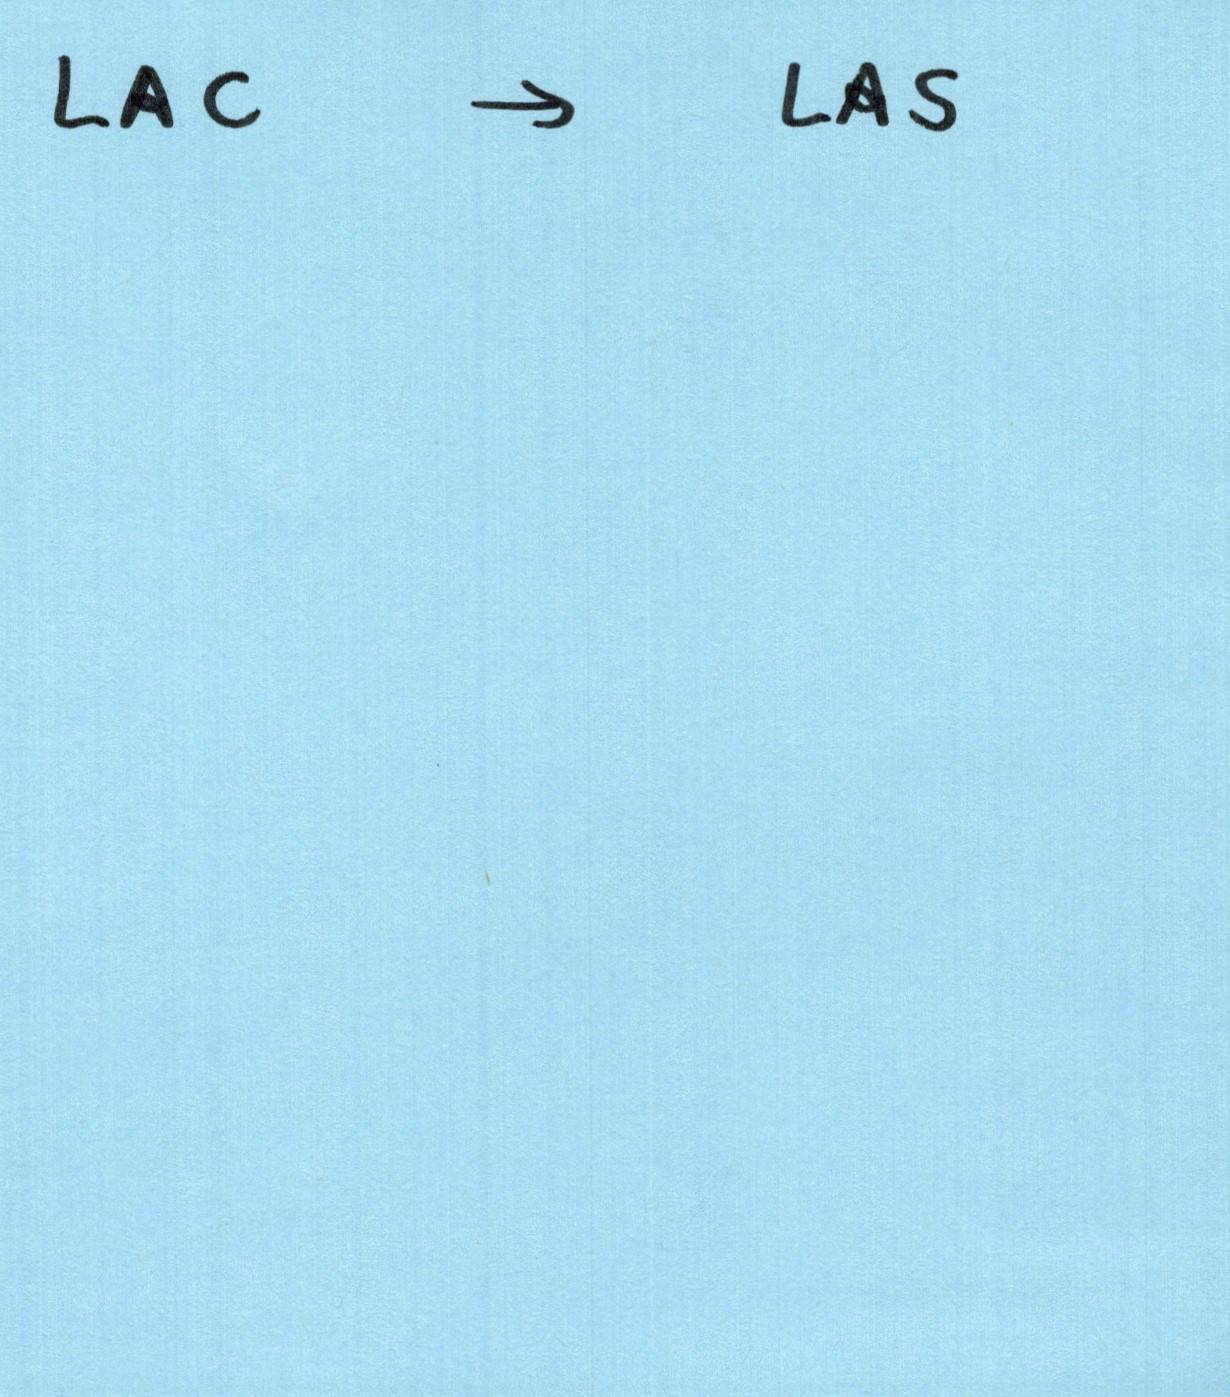 LAC → LAS